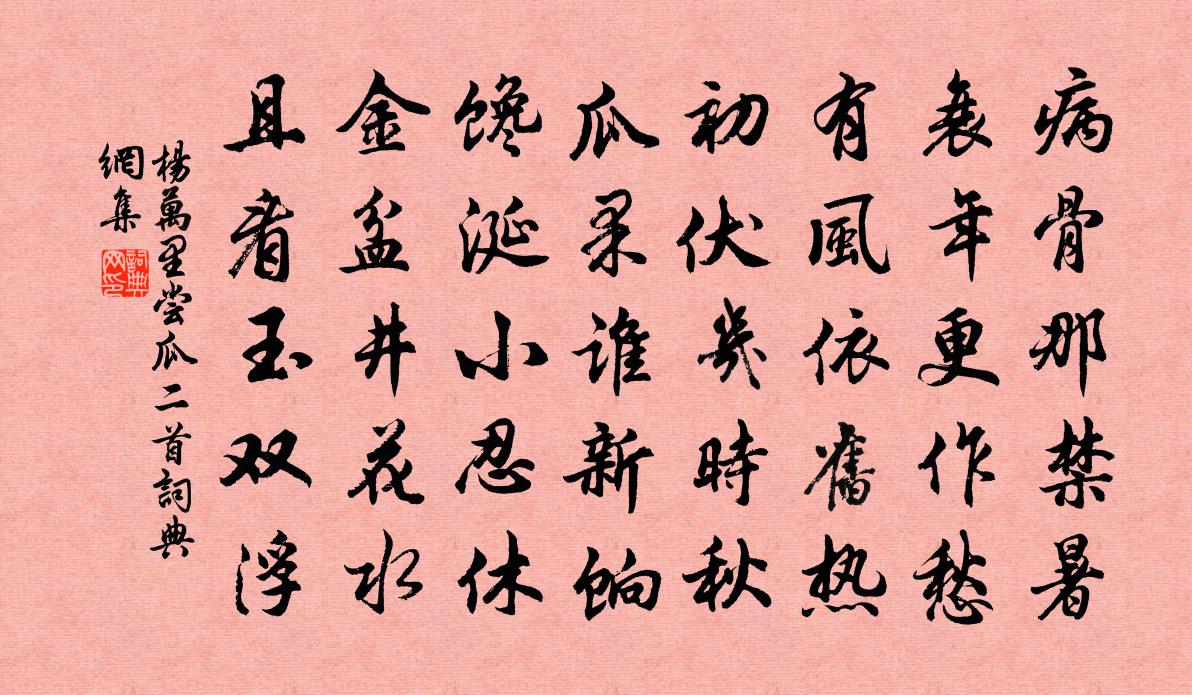 病骨那禁暑
衰年更作愁
有風依舊热
初伏幾時秋
瓜果誰新餉
馋涎小忍休
金盆井花水
且看玉双浮
楊萬里嘗瓜二首詞典
網集
詞典
网印